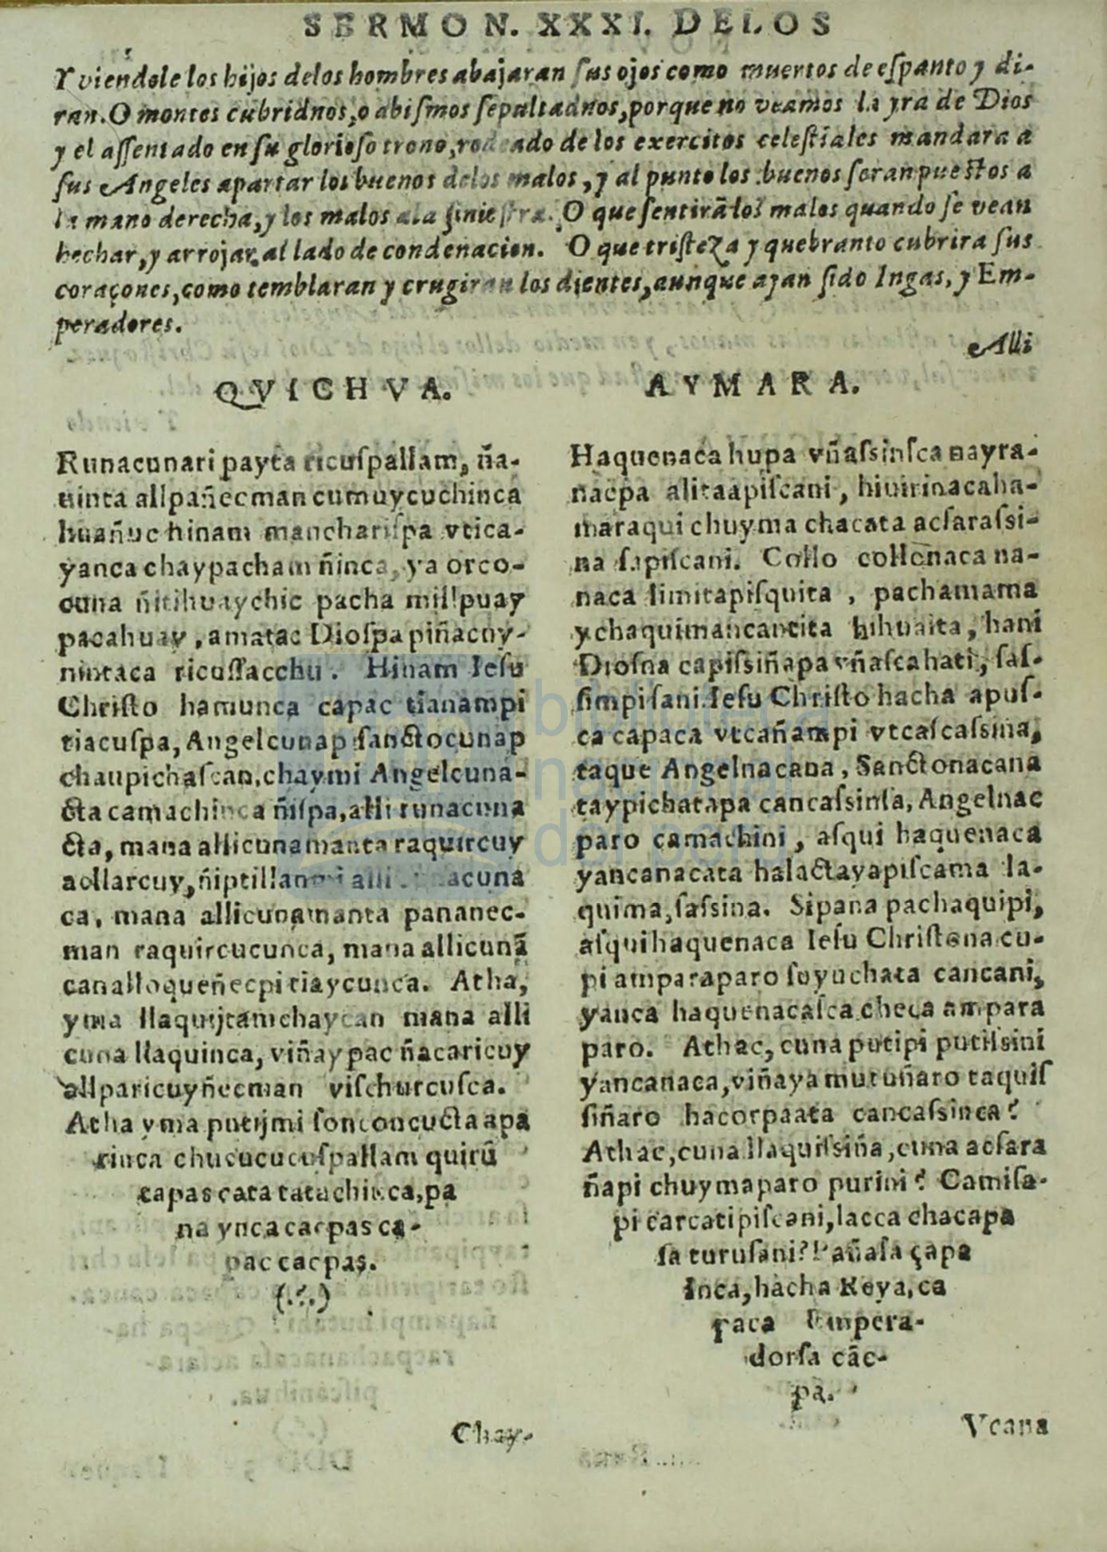 SERMON. XXXI. DELOS
Y viendole los hijos delos hombres abajaran sus ojos como muertos de espanto y di-
ran. O montes cubridnos, o abismos sepultadnos, porque no veamos la yra de Dios
y el assentado en su glorioso trono, rodeado de los exercitos celestiales mandara a
sus Angeles apartar los buenos delos malos, y al punto los buenos seran puestos a
la mano derecha, y los malos ala siniestra. O que sentirā los malos quando se vean
hechar, y arrojar al lado de condenacion. O que tristeza y quebranto cubrira sus
coraçones, como temblaran y crugiran los dientes, aunque ayan sido Ingas, y Em-
peradores.
Alli
QVICHVA.
Runacunari payta ricuspallam, ña-
uinta allpañecman cumuycuchinca
huañuc hinam mancharispa vtica-
yanca chaypacham ñinca, ya orco-
cuna ñitihuaychic pacha millpuay
pacahuay, amatac Diospa piñacuy-
nintaca ricussacchu. Hinam Iesu
Christo hamunca capac tianampi
tiacuspa, Angelcunap sanctocunap
chaupichascan, chaymi Angelcuna-
cta camachinca ñispa, alli runacuna
cta, mana allicunamanta raquircuy
acllarcuy, ñiptillanmi alli acuna
ca, mana allicunamanta pananec-
man raquircucunca, mana allicunā
canalloqueñecpi tiaycunca. Atha,
yma llaquijtamchaycan mana alli
cuna llaquinca, viñaypac ñacaricuy
allparicuyñecman vischurcusca.
Atha yma putijmi sonconcucta apa
rinca chucucucuspallam quirū
capas cata tatachinca, pa
na ynca cacpas ca-
pac cacpas.
(.·.)
Chay-
AYMARA.
Haquenaca hupa vñassinsca nayra-
nacpa alitaapiscani, hiuirinacaha-
maraqui chuyma chacata acsarassi-
na sapiscani. Collo collonaca na-
naca limitapisquita, pachamama
ychaquimancantita hihuaita, hani
Diosna capissiñapa vñascahati, sas-
simpi sani. Iesu Christo hacha apus-
ca capaca vtcañampi vtcascassina,
taque Angelnacana, Sanctonacana
taypichatapa cancassinsa, Angelnac
paro camachini, asqui haquenaca
yancanacata halactayapiscama la-
quima, sassina. Sipana pachaquipi,
asqui haquenaca Iesu Christona cu-
pi amparaparo suyuchata cancani,
yanca haquenacasca checa ampara
paro. Athac, cuna putipi putissini
yancanaca, viñaya mutuñaro taquis
siñaro hacorpaata cancassinca?
Athac, cuna llaquissiña, cuna acsara
ñapi chuymaparo purini? Camisa-
pi carcatipiscani, lacca chacapa
sa turusani? Pañasa çapa
Inca, hacha Reya, ca
paca Empera-
dorsa cāc-
pa.
Vcana